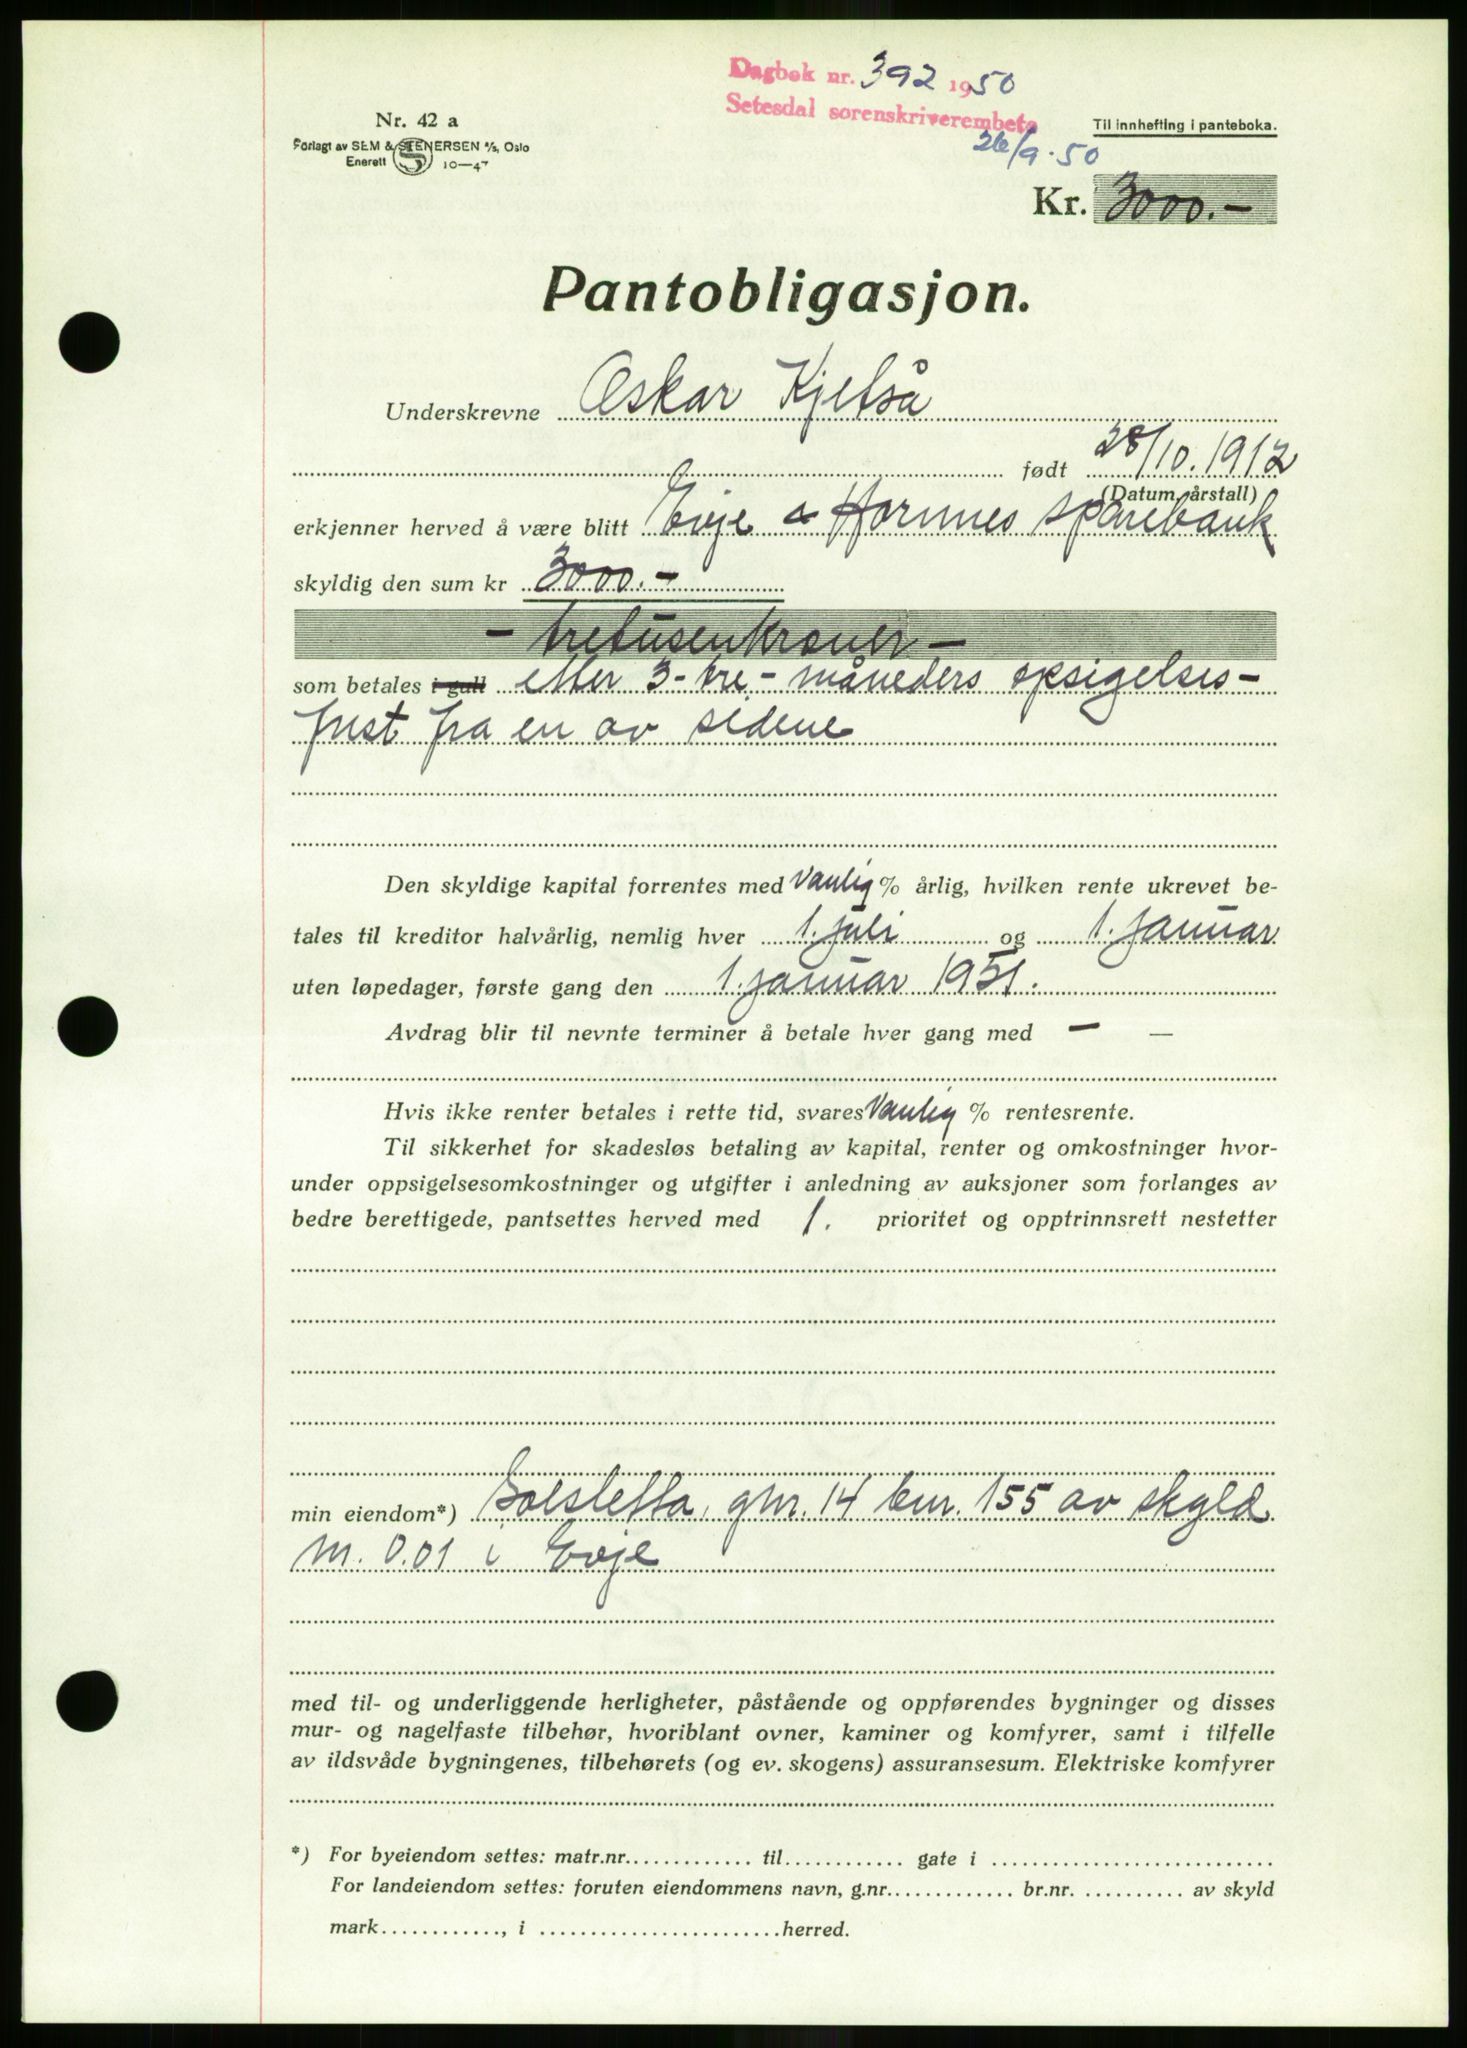 Dagbok nr. 392 1950
Setesdal sorenskriverembete
26/9-50
Nr. 42 a
Forlagt av SEM & STENERSEN A/S, Oslo
Enerett S 10—47
Til innhefting i panteboka.
Kr. 3000.-
Pantobligasjon.
Underskrevne Oskar Kjetså
født 28/10. 1912
(Datum, årstall)
erkjenner herved å være blitt Evje & Hornnes sparebank
skyldig den sum kr 3000.-
- tretusenkroner -
som betales i gull etter 3-tre- måneders opsigelses-
frist fra en av sidene
Den skyldige kapital forrentes med Vanlig % årlig, hvilken rente ukrevet be-
tales til kreditor halvårlig, nemlig hver 1. juli og 1. januar
uten løpedager, første gang den 1. januar 1951.
Avdrag blir til nevnte terminer å betale hver gang med — —
Hvis ikke renter betales i rette tid, svares Vanlig % rentesrente.
Til sikkerhet for skadesløs betaling av kapital, renter og omkostninger hvor-
under oppsigelsesomkostninger og utgifter i anledning av auksjoner som forlanges av
bedre berettigede, pantsettes herved med 1. prioritet og opptrinnsrett nestetter
min eiendom*) Solsletta, gnr. 14 bnr. 155 av skyld
m. 0.01 i Evje
med til- og underliggende herligheter, påstående og oppførendes bygninger og disses
mur- og nagelfaste tilbehør, hvoriblant ovner, kaminer og komfyrer, samt i tilfelle
av ildsvåde bygningenes, tilbehørets (og ev. skogens) assuransesum. Elektriske komfyrer
*) For byeiendom settes: matr.nr............. til............ gate i ............................
For landeiendom settes: foruten eiendommens navn, g.nr............. br.nr. .......... av skyld
mark............, i ........................herred.